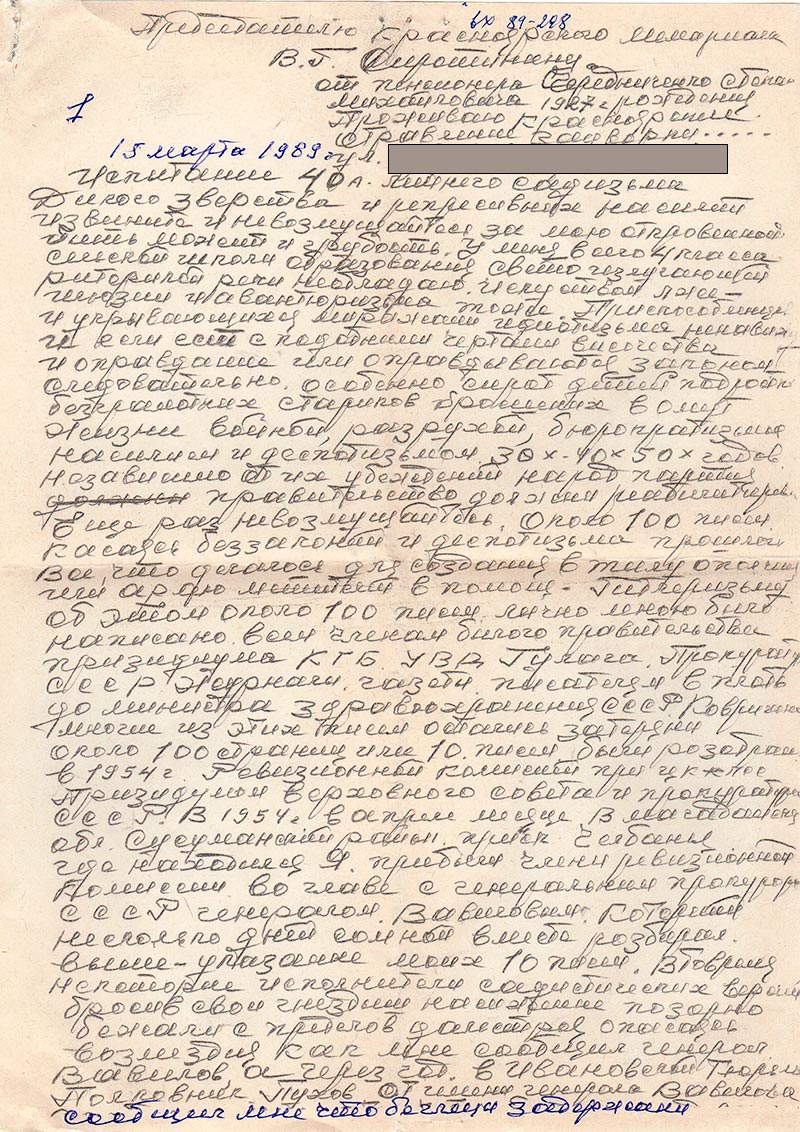 вх 89-298
Председателю Красноярского мемориала
В.Г. Сиротинину
от пенсионера Чередниченко Степана
Михайловича 1927 г рождения
Проживаю Красноярский.
1
15 марта 1989 г ул.
Испитание 40 А. личного садизьма
Дикого зверства и репресивных насилий
извините и невозмущайтесь за мою откровенност
быть может и грубость. У меня всего 4 класса
сельской школи образования свето излучающей
риторикой речи необладаю. Искуством лжи-
илюзии и авантюризма тоже. Приспособленцев
и укрывающихся миражами идиотизьма ненавиж
и если есть с подобними чертами висичества
и оправдание или оправдываются законом
следовательно. особенно сирот детей подростк
безграмотних стариков брошених в омут
жизни войной, разрухой, бюрократизьма
насилием и деспотизьмом 30х-40х 50х годов.
независимо от их убеждений народ партия
должни правительство должни
Еще раз невозмущайтесь. Около 100 писем
касаясь беззаконий и деспотизьма прошлого
Ва, что делалось для создания в тилу
или армию в помощ- Гитлеризьму
об этом около 100 писем лично мною било
написано всем членам билого правительства
призидиума КГБ УВД Гулага. Прокурату
СССР Журнали газети писателям в плоть
до министра здравоохранения СССР Ковригина
многие из этих писем остались затеряни
около 100 страниц или 10 писем были розобрани
в 1954 г. Ревизионной комисией при ЦК КПСС
Призидумом верховного совета и прокуратури
СССР. В 1954 г в апреле месяце. В магаданской
обл. Сусуманский район, приск Челбанья
где находился Я. прибыли члени ревизионной
Комиссии во главе с генеральним прокурором
СССР генералом Вавиловым. Который
несколько дней сомной вместе розбирал.
выше-указание моих 10 писем. В то время
некоторие исполнители садистических
бросив свои гнезда насиженние позорно
бежали с пределов дальстроя опасаясь
возмездия как мне сообщил генерал
Вавилов, а через год. в Ивановской Тюрьме
Полковник Пухов От имени генерала Вавилова
сообщил мне что беглеци задержани